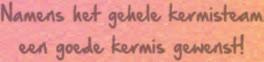 Namens het gehele kermisteam
een goede kermis gewenst!